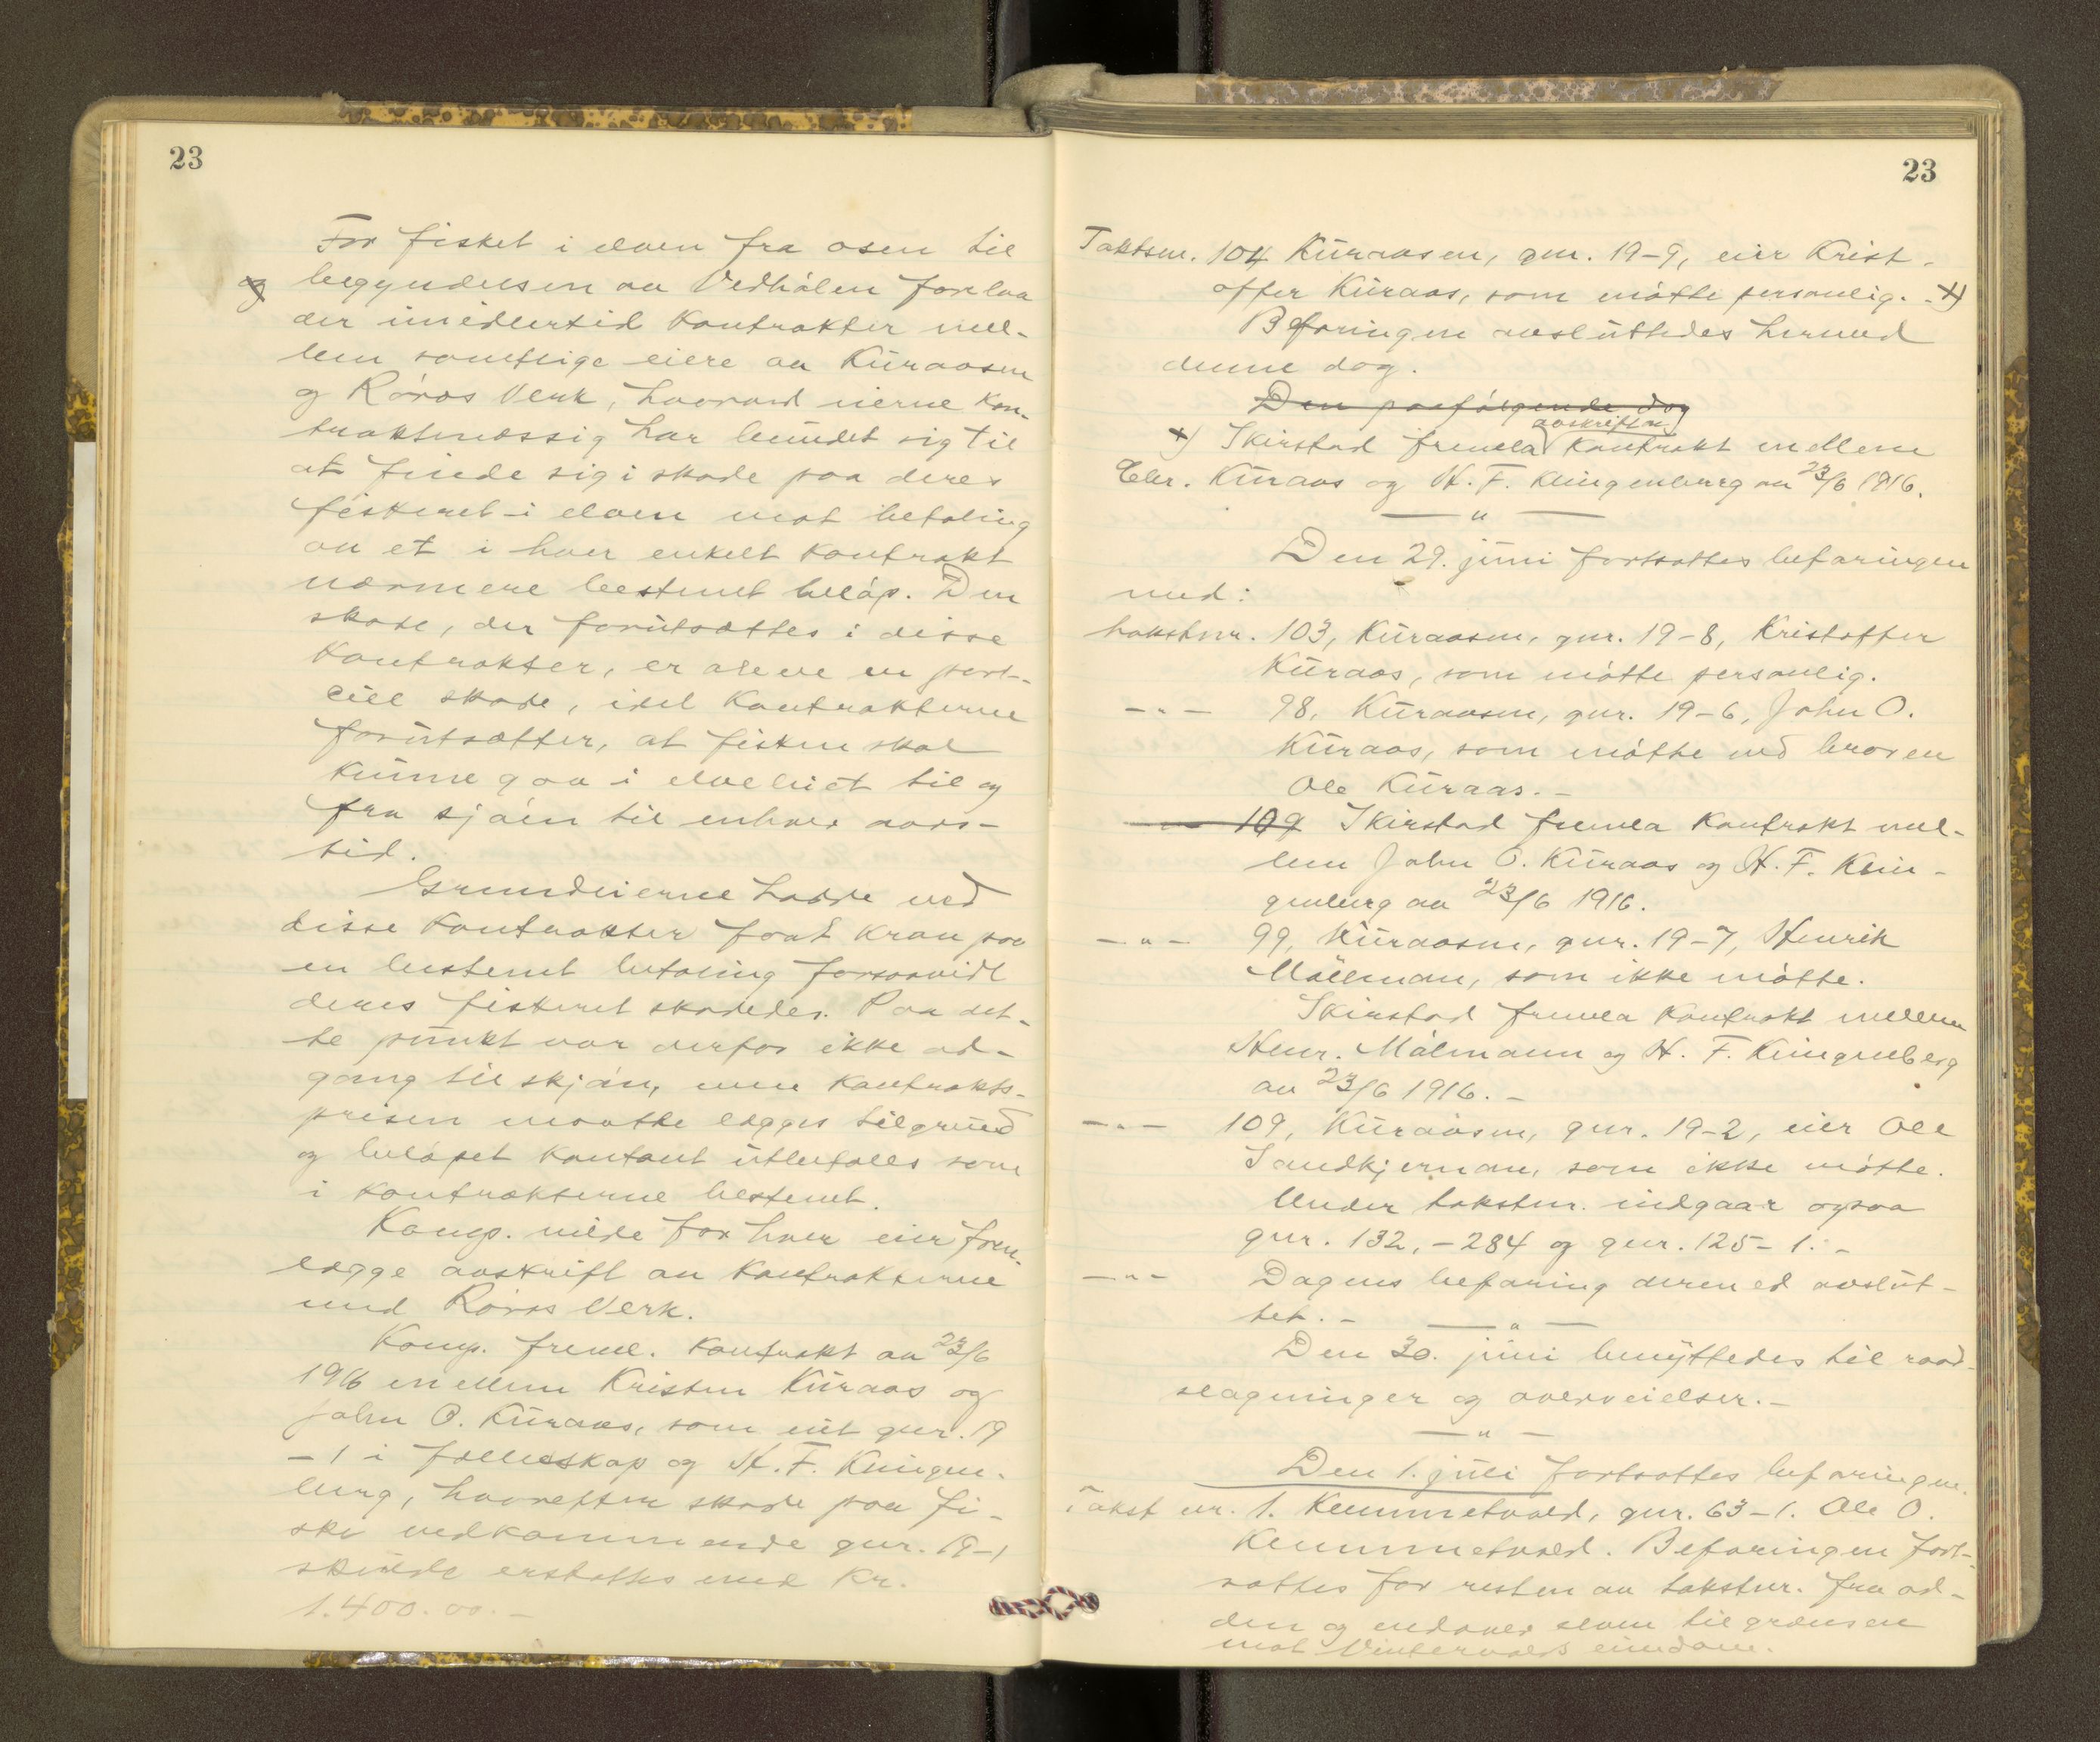 23
For fisket i elven fra osen til
og begyndelsen av Vedhölen forelaa
der imidlertid kontrakter mel-
lem samtlige eiere av Kuraasen
og Röros Verk, hvorved eierne kon-
traktmæssig har bundet sig til
at finde sig i skade paa deres
fiskeret i elven mot betaling
av et i hver enkelt kontrakt
nærmere bestemt belöp. Den
skade, der forutsættes i disse
kontrakter, er alene en parti-
ell skade, idet kontrakterne
forutsætter, at fisken skal
kunne gaa i elveleiet til og
fra sjöen til enhver aars-
tid.
Grundeierne hadde ved
disse kontrakter faat krav paa
en bestemt betaling forsaavidt
deres fiskeret skadedes. Paa det-
te punkt var derfor ikke ad-
gang til skjön, men kontrakts-
prisen maatte lægges tilgrund
og belöpet kontant utbetales som
i kontrakterne bestemt.
Komp. vilde for hver eier frem-
lægge avskrift av kontrakterne
med Röros Verk.
Komp. freml. kontrakt av 23/6
1916 mellem Kristen Kuraas og
John O. Kuraas, som eiet gnr. 19
-1 i fællesskap og H. F. Klingen-
berg, hvorefter skade paa fi-
ske vedkommende gnr. 19-1
skulde erstattes med Kr.
1.400.00.-
23
Takstnr. 104 Kuraasen, gnr. 19-9, eier Krist-
offer Kuraas, som mötte personlig. - +)
Befaringen avsluttedes hermed
denne dag.
Den paafölgende dag
+) Skirstad fremla avskrift av kontrakt mellem
Chr. Kuraas og H. F. Klingenberg av 23/6 1916.
— " —
Den 29. juni fortsattes befaringen
med:
takstnr. 103, Kuraasen, gnr. 19-8, Kristoffer
Kuraas, som mötte personlig.
-"- 98, Kuraasen, gnr. 19-6, John O.
Kuraas, som mötte ved broren
Ole Kuraas.-
-"- 109 Skirstad fremla kontrakt mel-
lem John O. Kuraas og H. F. Klin-
genberg av 23/6 1916.
-"- 99, Kuraasen, gnr. 19-7, Henrik
Mölman, som ikke mötte.
Skirstad fremla kontrakt mellem
Henr. Mölmann og H. F. Klingenberg
av 23/6 1916.-
-"- 109, Kuraasen, gnr. 19-2, eier Ole
Sandkjernan, som ikke mötte.
Under takstnr. indgaar ogsaa
gnr. 132,-284 og gnr. 125-1.-
-"- Dagens befaring dermed avslut-
tet.- — " —
Den 30. juni benyttedes til raad-
slagninger og overveielser.-
— " —
Den 1. juli fortsattes befaringen.
Takst nr. 1. Kummelvold, gnr. 63-1. Ole O.
Kummelvold. Befaringen fort-
sattes for resten av takstnr. fra od-
den og nedover elven til grænsen
mot Vintervolds eiendom.